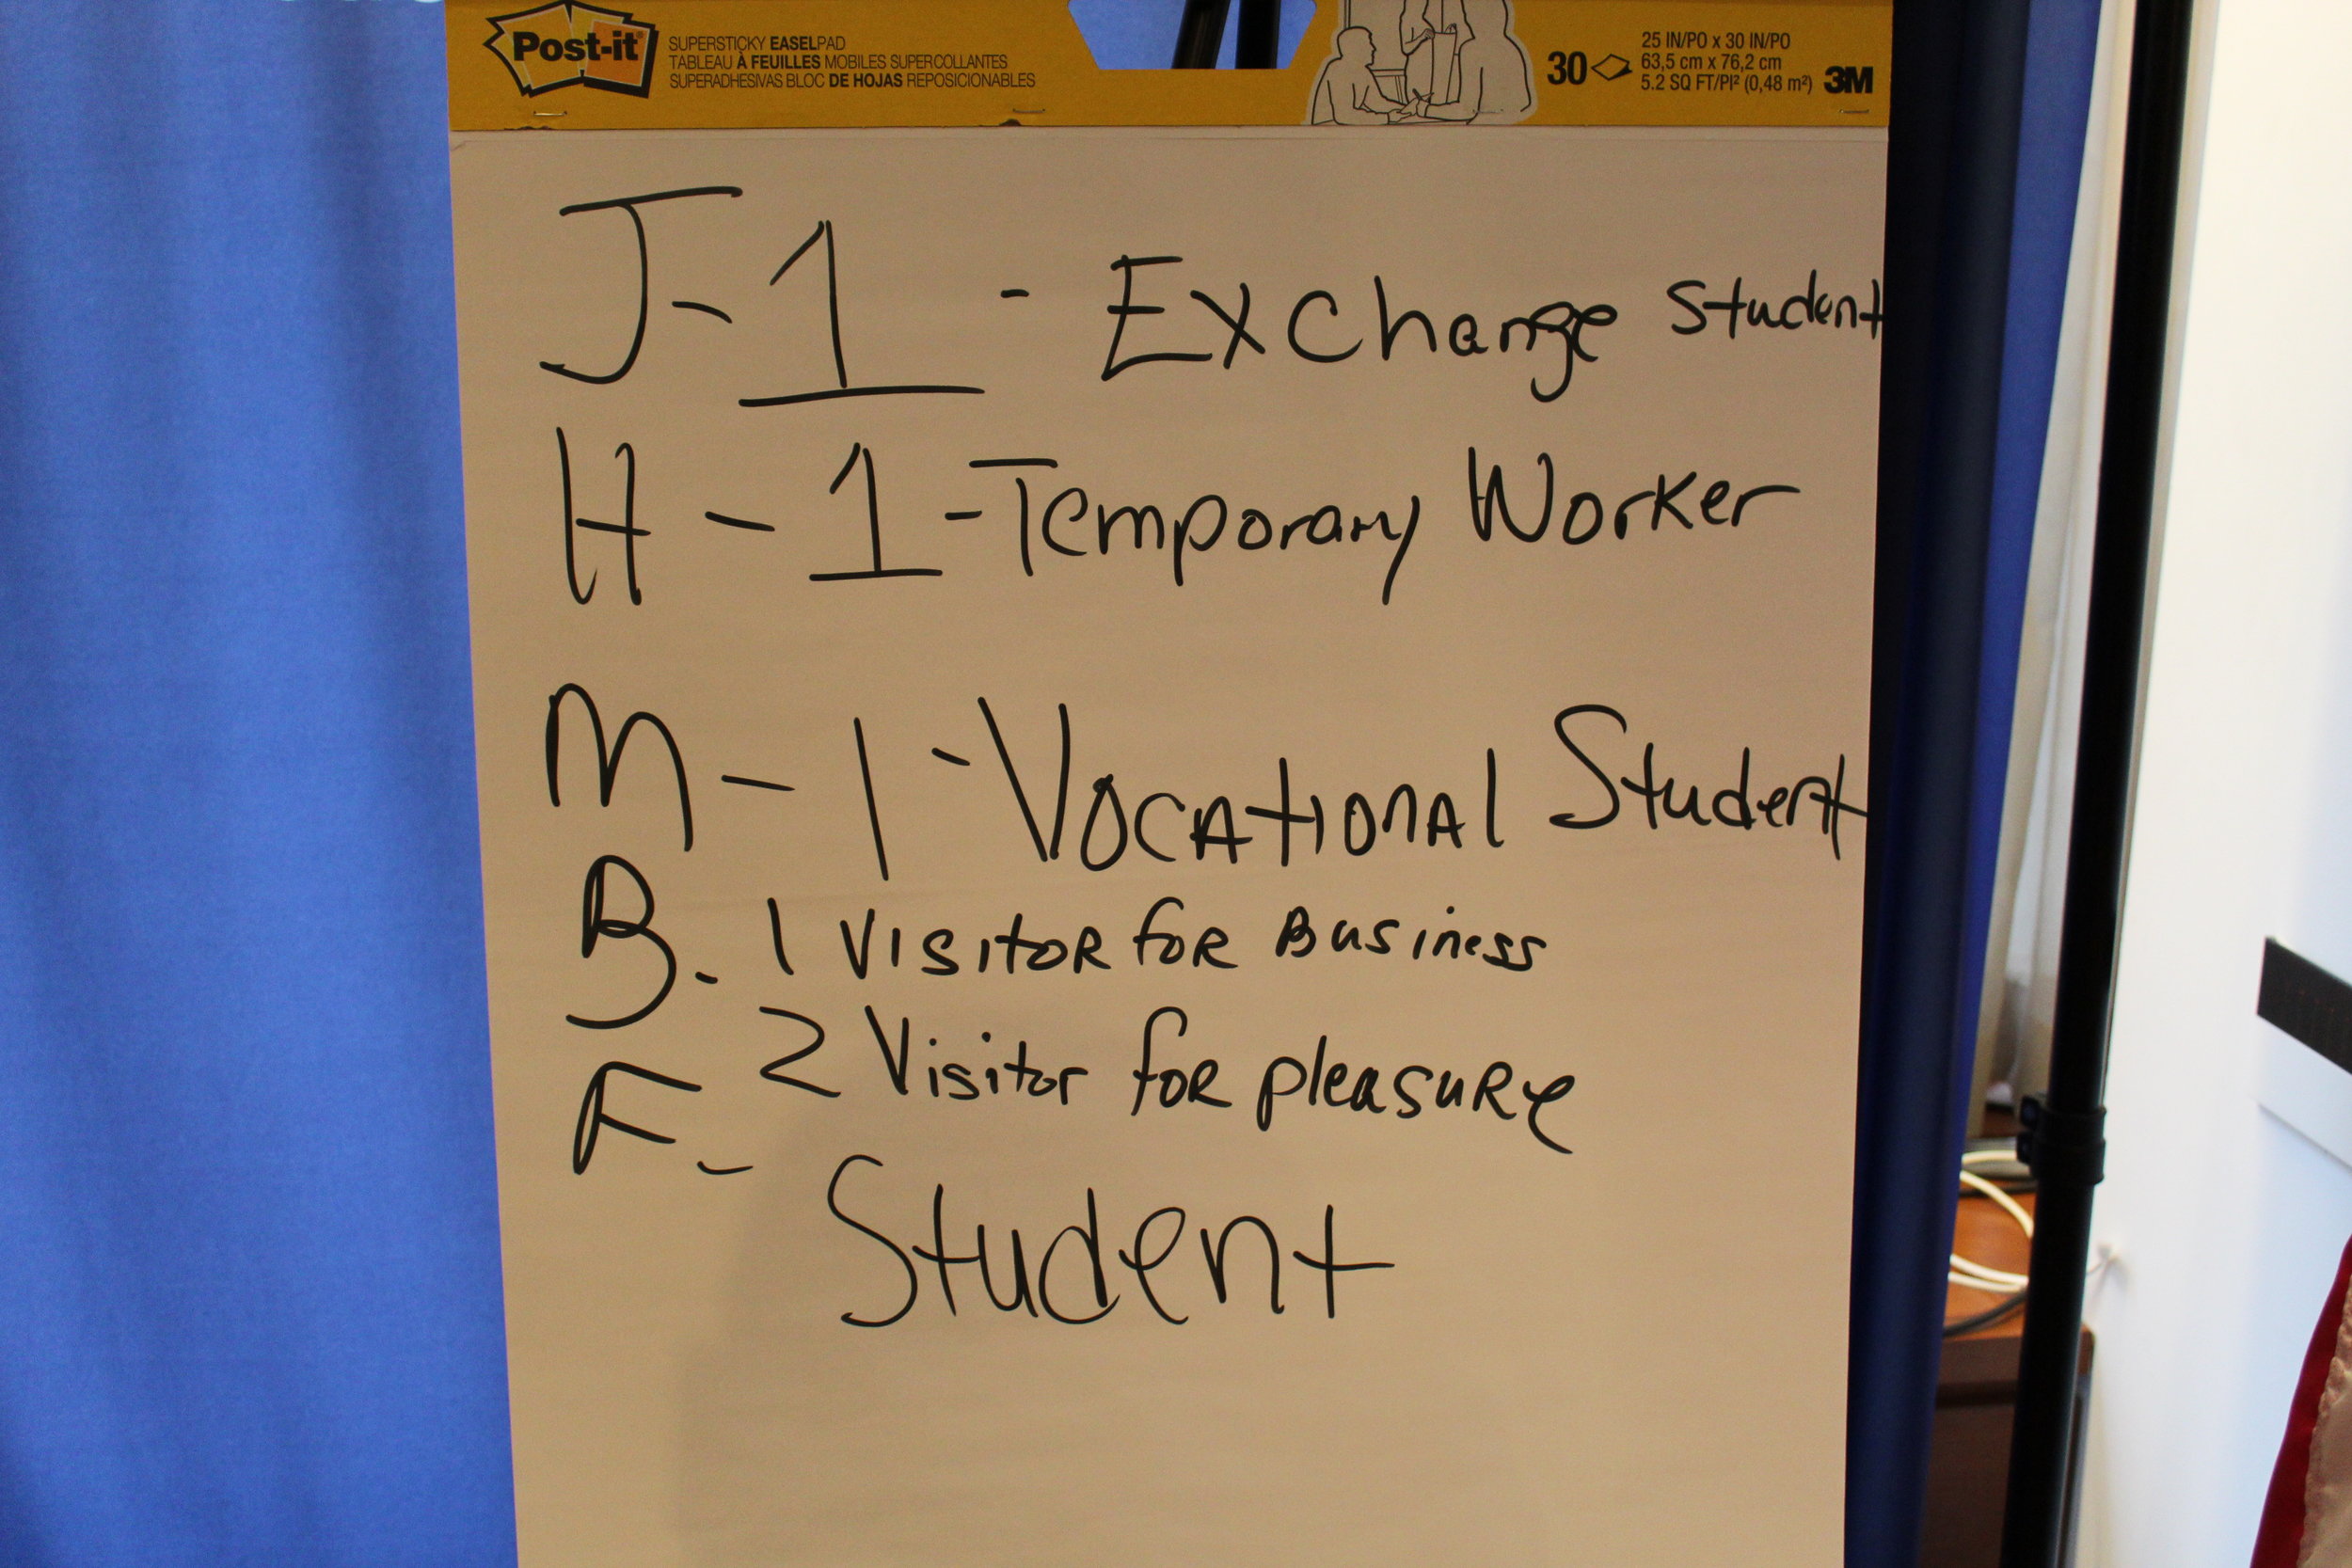 Post-it
SUPERSTICKY EASELPAD
TABLEAU À FEUILLES MOBILES SUPERCOLLANTES
SUPERADHESIVAS BLOC DE HOJAS REPOSICIONABLES
30
25 IN/PO x 30 IN/PO
63,5 cm x 76,2 cm
5.2 SQ FT/PI² (0,48 m²)
3M
J-1 - Exchange Student
H-1-Temporary Worker
M-1-Vocational Student
B-1 Visitor for Business
2 Visitor for pleasure
F-
Student